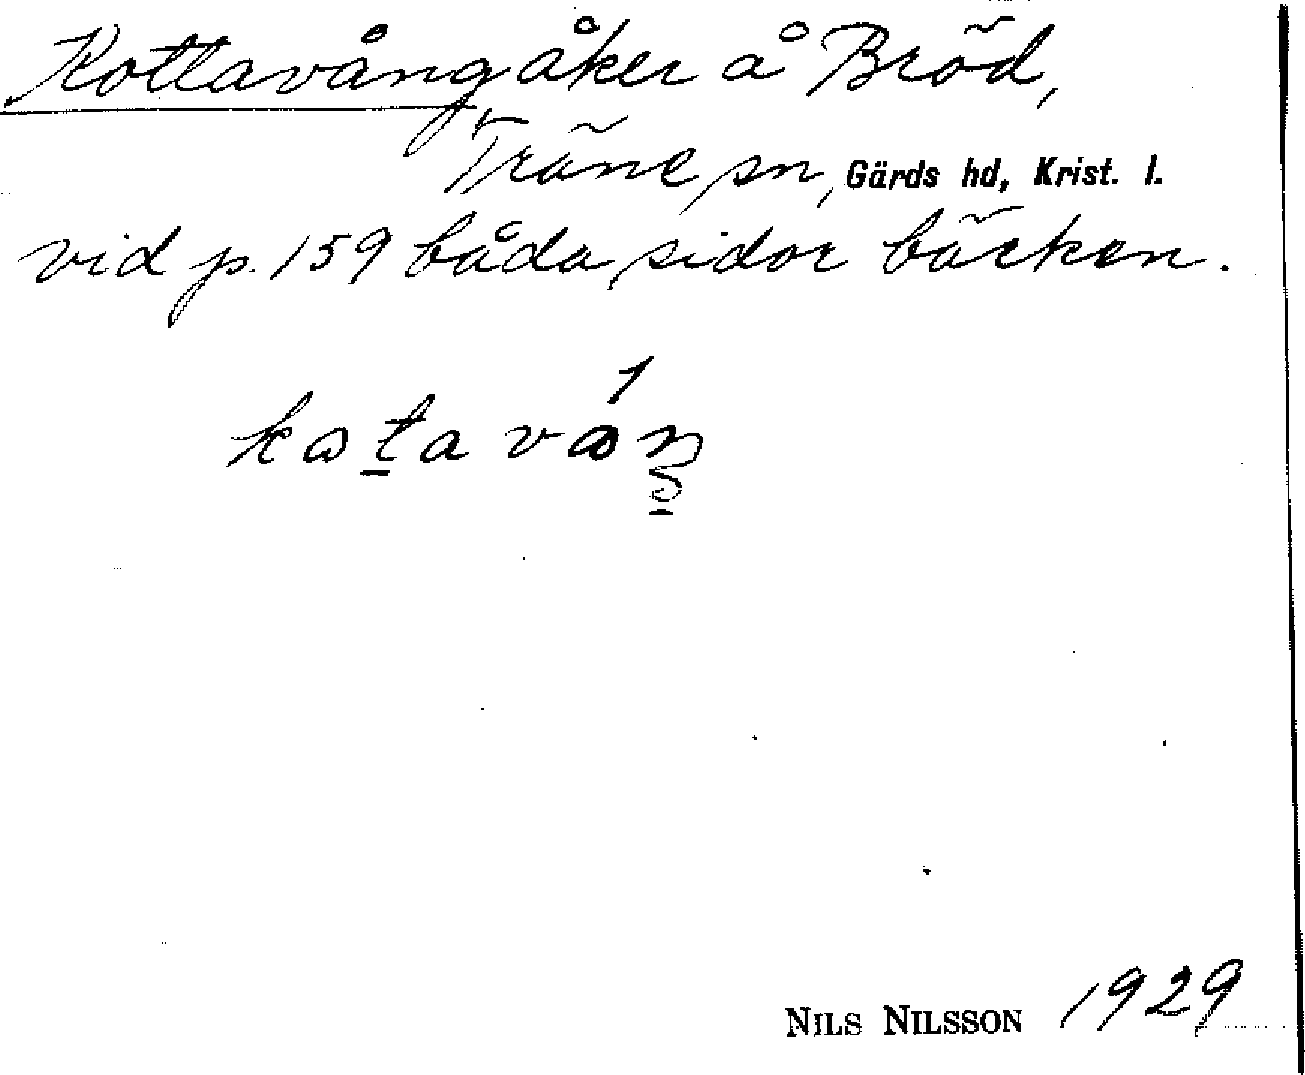 Kottavång åker å Bröd,
Träne sn, Gärds hd, Krist. l.
vid p. 159 båda sidor bäcken.
NILS NILSSON 1929